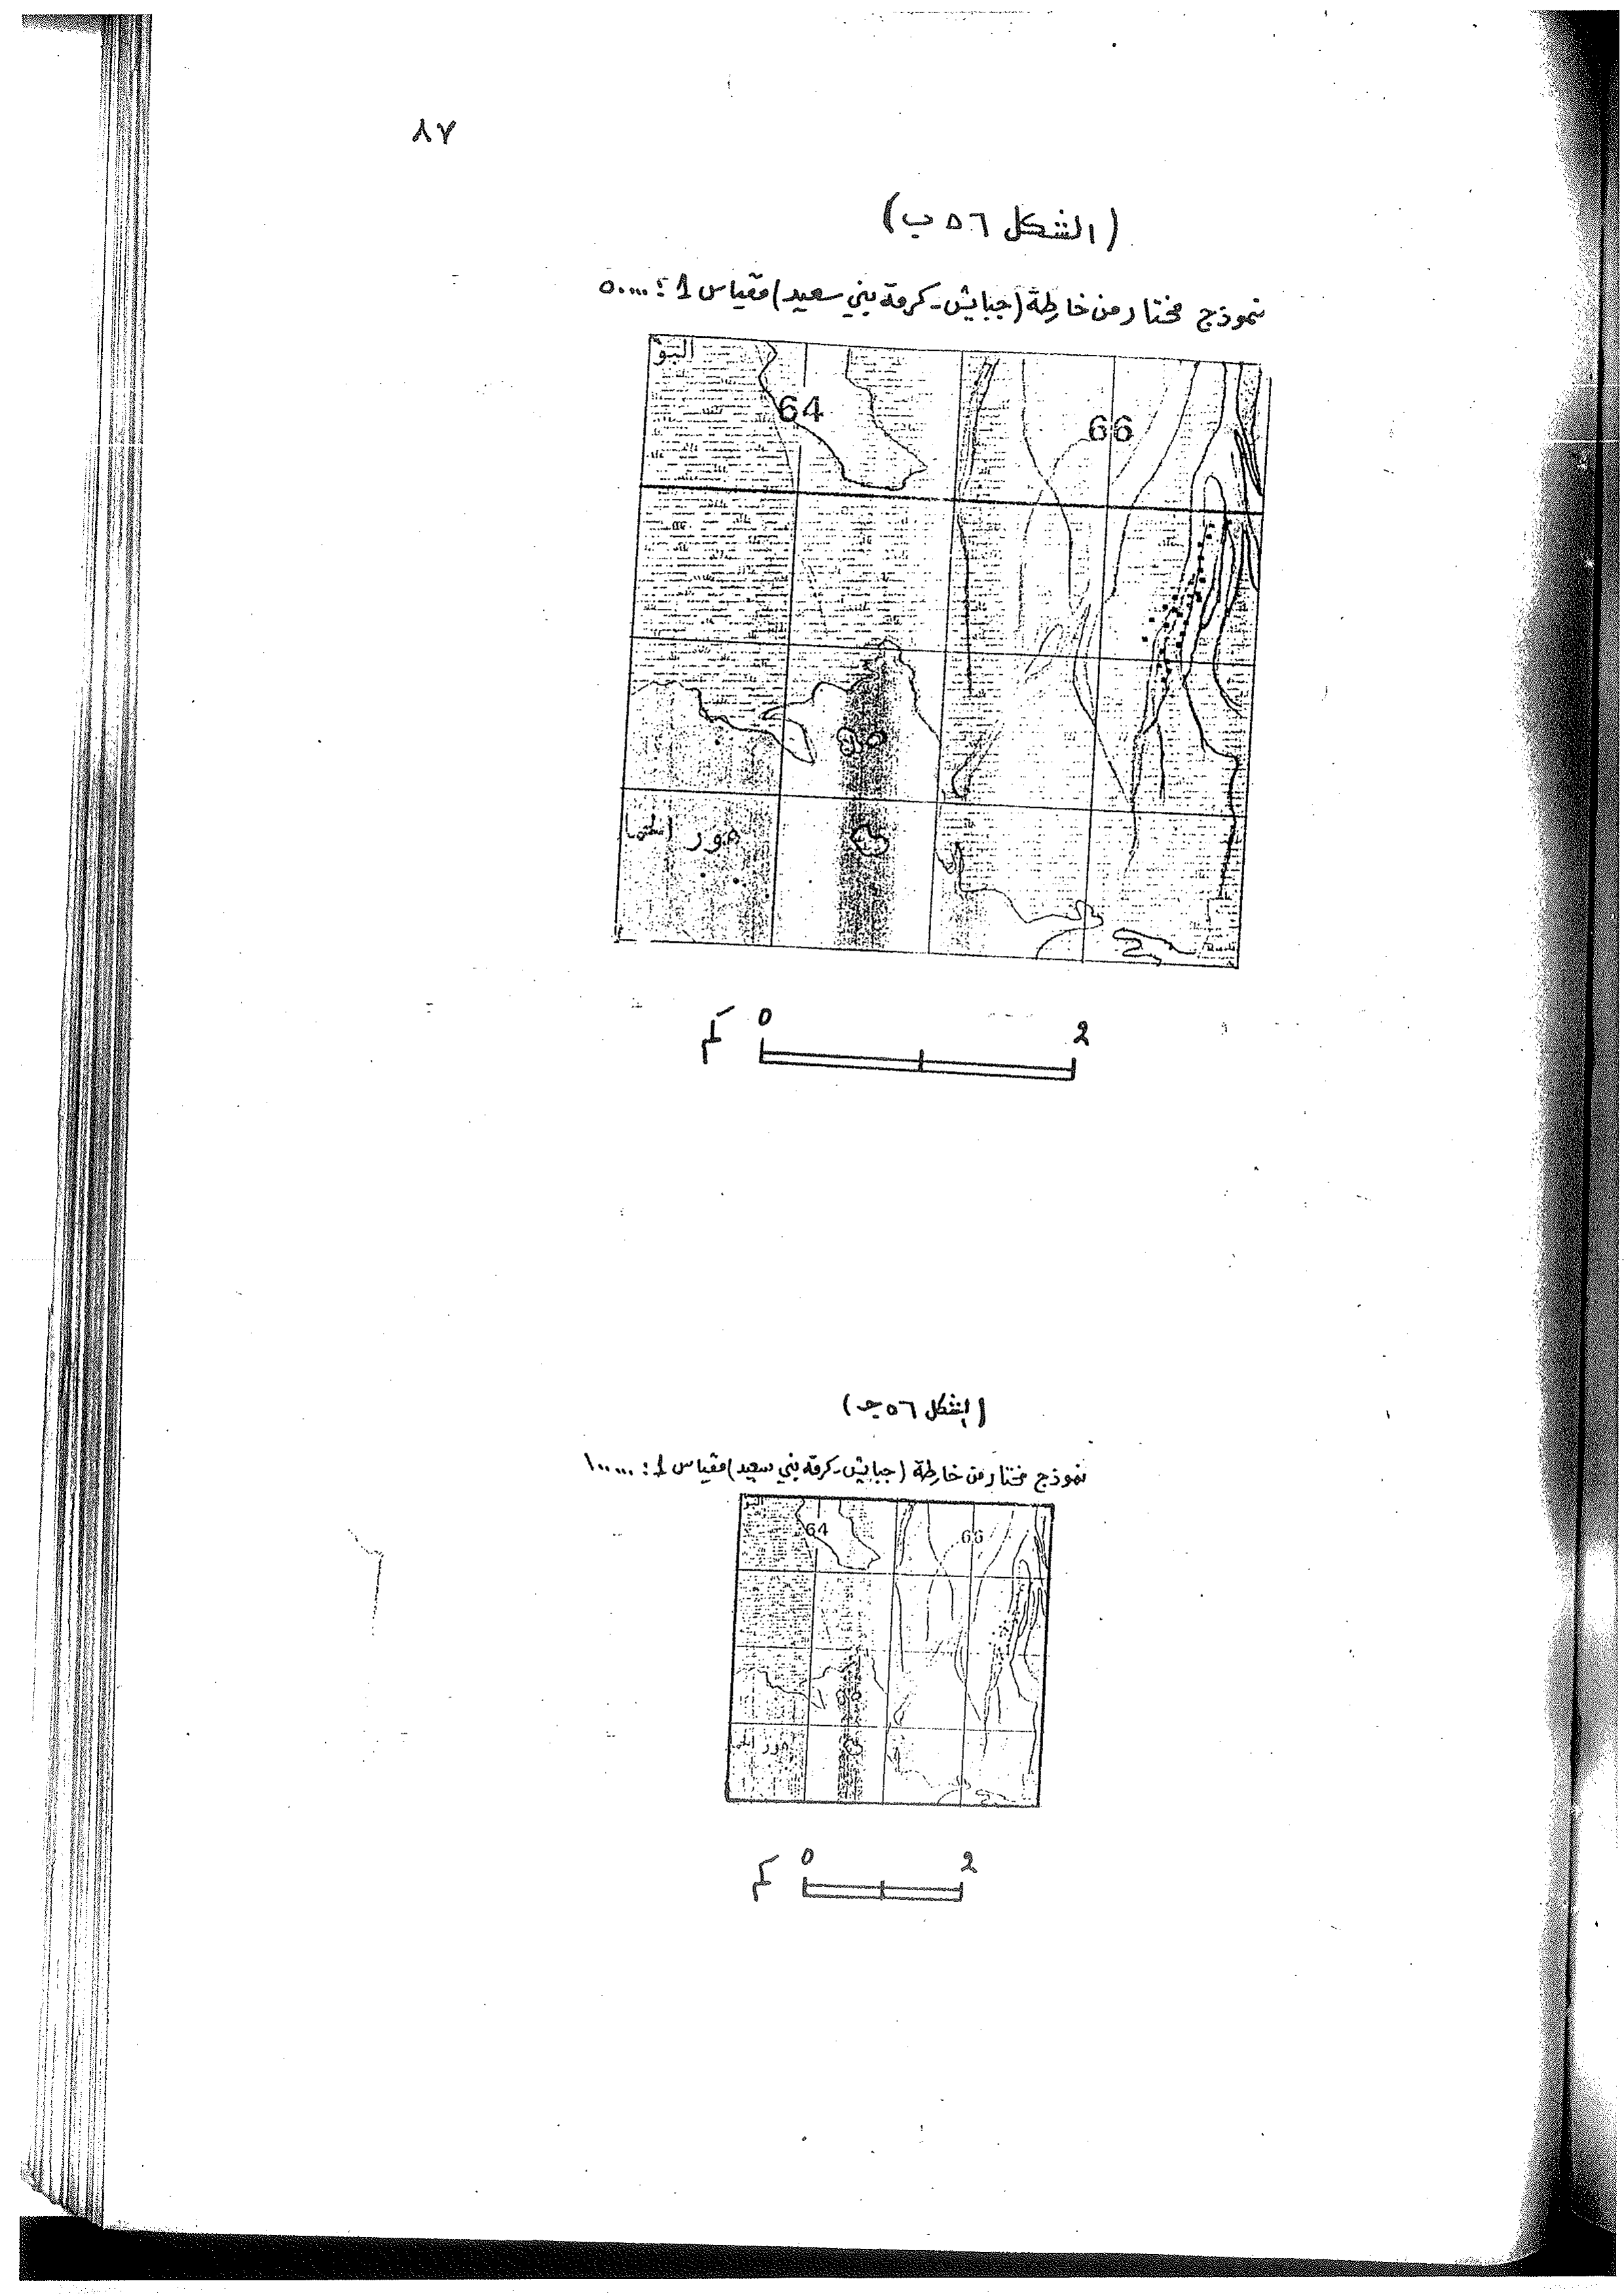 ٨٧
(الشكل ٥٦ ب)
نموذج مختار من خارطة (جبايش - كرمة بني سعيد) مقياس 1 : ٥٠٠٠٠
البو
64
66
هور
كم 0 2
(الشكل ٥٦ جـ)
نموذج مختار من خارطة (جبايش - كرمة بني سعيد) مقياس 1 : ١٠٠٠٠٠
البو
64
66
هور
كم 0 2